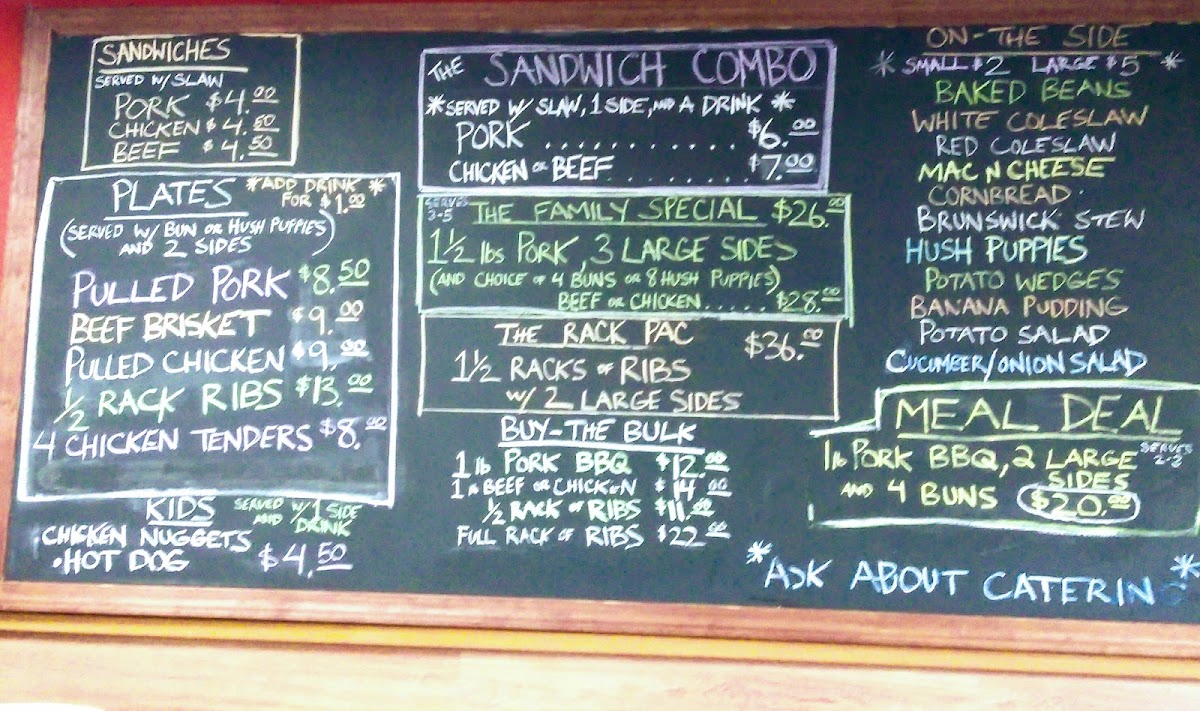 SANDWICHES
SERVED W/ SLAW
PORK $4.00
CHICKEN $4.50
BEEF $4.50
PLATES *ADD DRINK FOR $1.00*
(SERVED W/ BUN OR HUSH PUPPIES)
AND 2 SIDES
PULLED PORK $8.50
BEEF BRISKET $9.00
PULLED CHICKEN $9.00
1/2 RACK RIBS $13.00
4 CHICKEN TENDERS $8.00
KIDS SERVED W/ 1 SIDE AND DRINK
CHICKEN NUGGETS
•HOT DOG $4.50
THE SANDWICH COMBO
*SERVED W/ SLAW, 1 SIDE, AND A DRINK*
PORK ........... $6.00
CHICKEN OR BEEF ........ $7.00
SERVES 3-5 THE FAMILY SPECIAL $26.00
1 1/2 lbs PORK, 3 LARGE SIDES
(AND CHOICE OF 4 BUNS OR 8 HUSH PUPPIES)
BEEF OR CHICKEN .... $28.00
THE RACK PAC $36.00
1 1/2 RACKS OF RIBS
W/ 2 LARGE SIDES
BUY-THE BULK
1 lb PORK BBQ $12.00
1 lb BEEF OR CHICKEN $14.00
1/2 RACK OF RIBS $11.00
FULL RACK OF RIBS $22.00
ON-THE SIDE
* SMALL $2 LARGE $5 *
BAKED BEANS
WHITE COLESLAW
RED COLESLAW
MAC N CHEESE
CORNBREAD
BRUNSWICK STEW
HUSH PUPPIES
POTATO WEDGES
BANANA PUDDING
POTATO SALAD
CUCUMBER/ONION SALAD
MEAL DEAL
1 lb PORK BBQ, 2 LARGE SIDES SERVES 2-3
AND 4 BUNS $20.00
*ASK ABOUT CATERING*